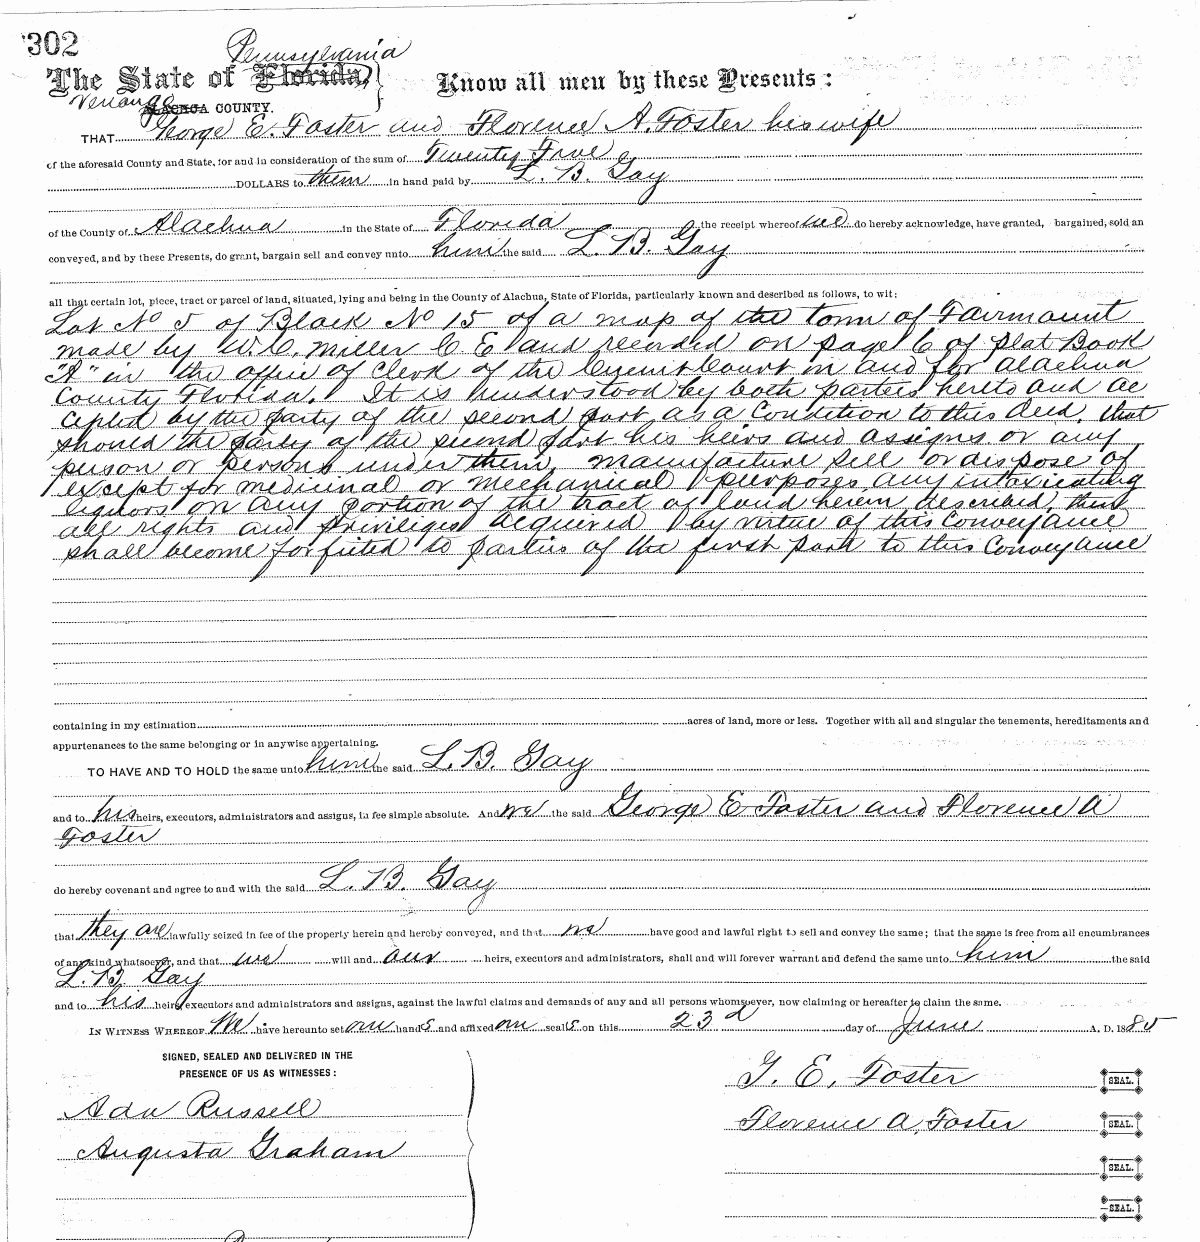 302
Pennsylvania
The State of Florida,
Venango
ALACHUA COUNTY.
Know all men by these Presents:
THAT George E. Foster and Florence A. Foster his wife
of the aforesaid County and State, for and in consideration of the sum of Twenty Five
DOLLARS to them in hand paid by L. B. Gay
of the County of Alachua in the State of Florida the receipt whereof we do hereby acknowledge, have granted, bargained, sold an
conveyed, and by these Presents, do grant, bargain sell and convey unto him the said L. B. Gay
all that certain lot, piece, tract or parcel of land, situated, lying and being in the County of Alachua, State of Florida, particularly known and described as follows, to wit:
Lot No 5 of Block No 15 of a map of the town of Fairmount
made by W. C. Miller C E and recorded on page 6 of Plat Book
"A" in the office of Clerk of the Circuit Court in and for Alachua
County Florida. It is understood by both parties hereto and ac
cepted by the party of the second part as a Condition to this deed, that
should the party of the second part his heirs and assigns or any
person or persons under them, manufacture sell or dispose of
except for medicinal or mechanical purposes any intoxicating
liquors on any portion of the tract of land herein described, then
all rights and privileges acquired by virtue of this Conveyance
shall become forfeited to parties of the first part to this Conveyance
containing in my estimation acres of land, more or less. Together with all and singular the tenements, hereditaments and
appurtenances to the same belonging or in anywise appertaining.
TO HAVE AND TO HOLD the same unto him the said L. B. Gay
and to his heirs, executors, administrators and assigns, in fee simple absolute. And we the said George E Foster and Florence A
Foster
do hereby covenant and agree to and with the said L. B. Gay
that they are lawfully seized in fee of the property herein and hereby conveyed, and that we have good and lawful right to sell and convey the same; that the same is free from all encumbrances
of any kind whatsoever, and that we will and our heirs, executors and administrators, shall and will forever warrant and defend the same unto him the said
L. B. Gay
and to his heirs, executors and administrators and assigns, against the lawful claims and demands of any and all persons whomsoever, now claiming or hereafter to claim the same.
IN WITNESS WHEREOF We have hereunto set our hands and affixed our seals on this 23d day of June A. D. 1885
SIGNED, SEALED AND DELIVERED IN THE
PRESENCE OF US AS WITNESSES:
G. E. Foster SEAL.
Ada Russell
Florence A. Foster SEAL.
Augusta Graham
SEAL.
SEAL.